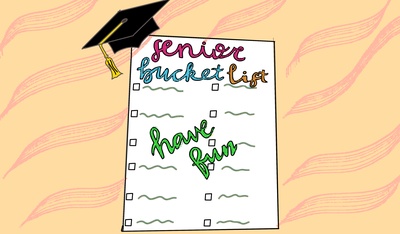 senior
bucket list
have
fun